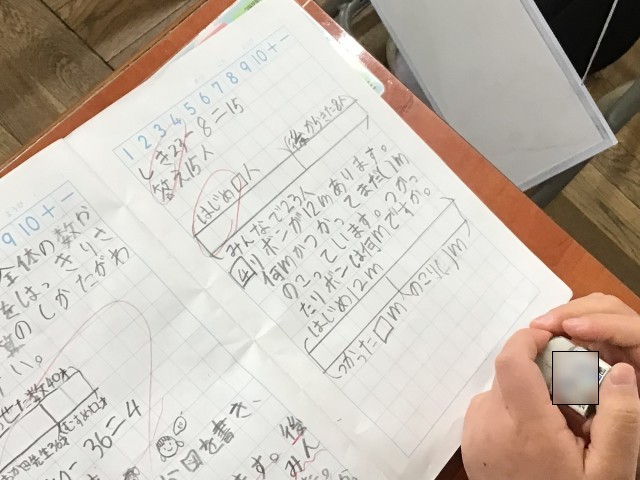 1 2 3 4 5 6 7 8 9 10 + −
しき23−8=15
答え15人
後からきた8人
はじめ□人
みんなで23人
④リボンが12mあります。
何mかつかってまだ
のこっています。つかっ
たリボンは何mですか。
はじめ12m
つかった□m
のこり
9 10 + −
全体の数か
をはっきりさ
算のしかたがわ
い。
数40
36=4
図を書き、
ます。後